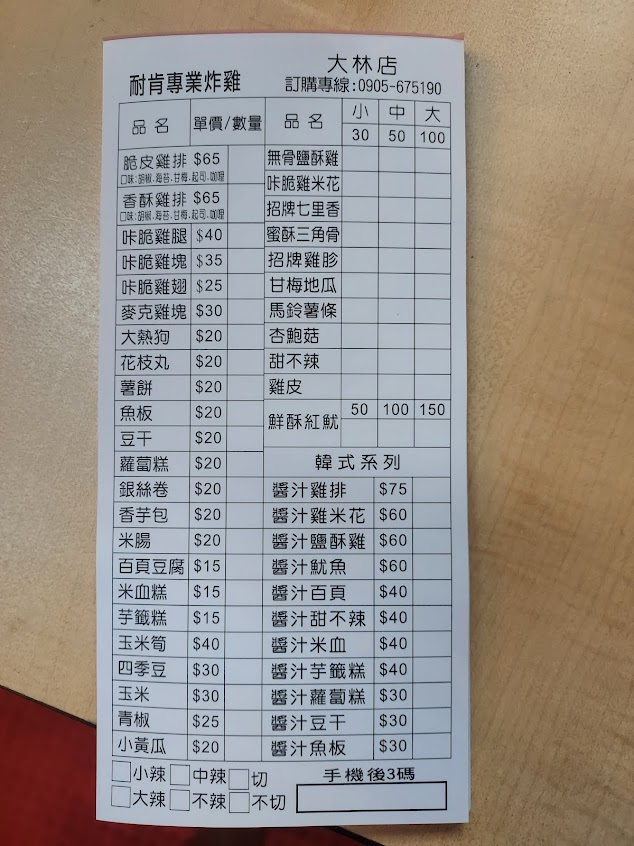 耐肯專業炸雞
大林店
訂購專線:0905-675190
品名 單價/數量
脆皮雞排 $65
口味:胡椒、海苔、甘梅、起司、咖哩
香酥雞排 $65
口味:胡椒、海苔、甘梅、起司、咖哩
咔脆雞腿 $40
咔脆雞塊 $35
咔脆雞翅 $25
麥克雞塊 $30
大熱狗 $20
花枝丸 $20
薯餅 $20
魚板 $20
豆干 $20
蘿蔔糕 $20
銀絲卷 $20
香芋包 $20
米腸 $20
百頁豆腐 $15
米血糕 $15
芋籤糕 $15
玉米筍 $40
四季豆 $30
玉米 $30
青椒 $25
小黃瓜 $20
品名 小 中 大
30 50 100
無骨鹽酥雞
咔脆雞米花
招牌七里香
蜜酥三角骨
招牌雞胗
甘梅地瓜
馬鈴薯條
杏鮑菇
甜不辣
雞皮
鮮酥紅魷 50 100 150
韓式系列
醬汁雞排 $75
醬汁雞米花 $60
醬汁鹽酥雞 $60
醬汁魷魚 $60
醬汁百頁 $40
醬汁甜不辣 $40
醬汁米血 $40
醬汁芋籤糕 $40
醬汁蘿蔔糕 $30
醬汁豆干 $30
醬汁魚板 $30
小辣 中辣 切
大辣 不辣 不切
手機後3碼